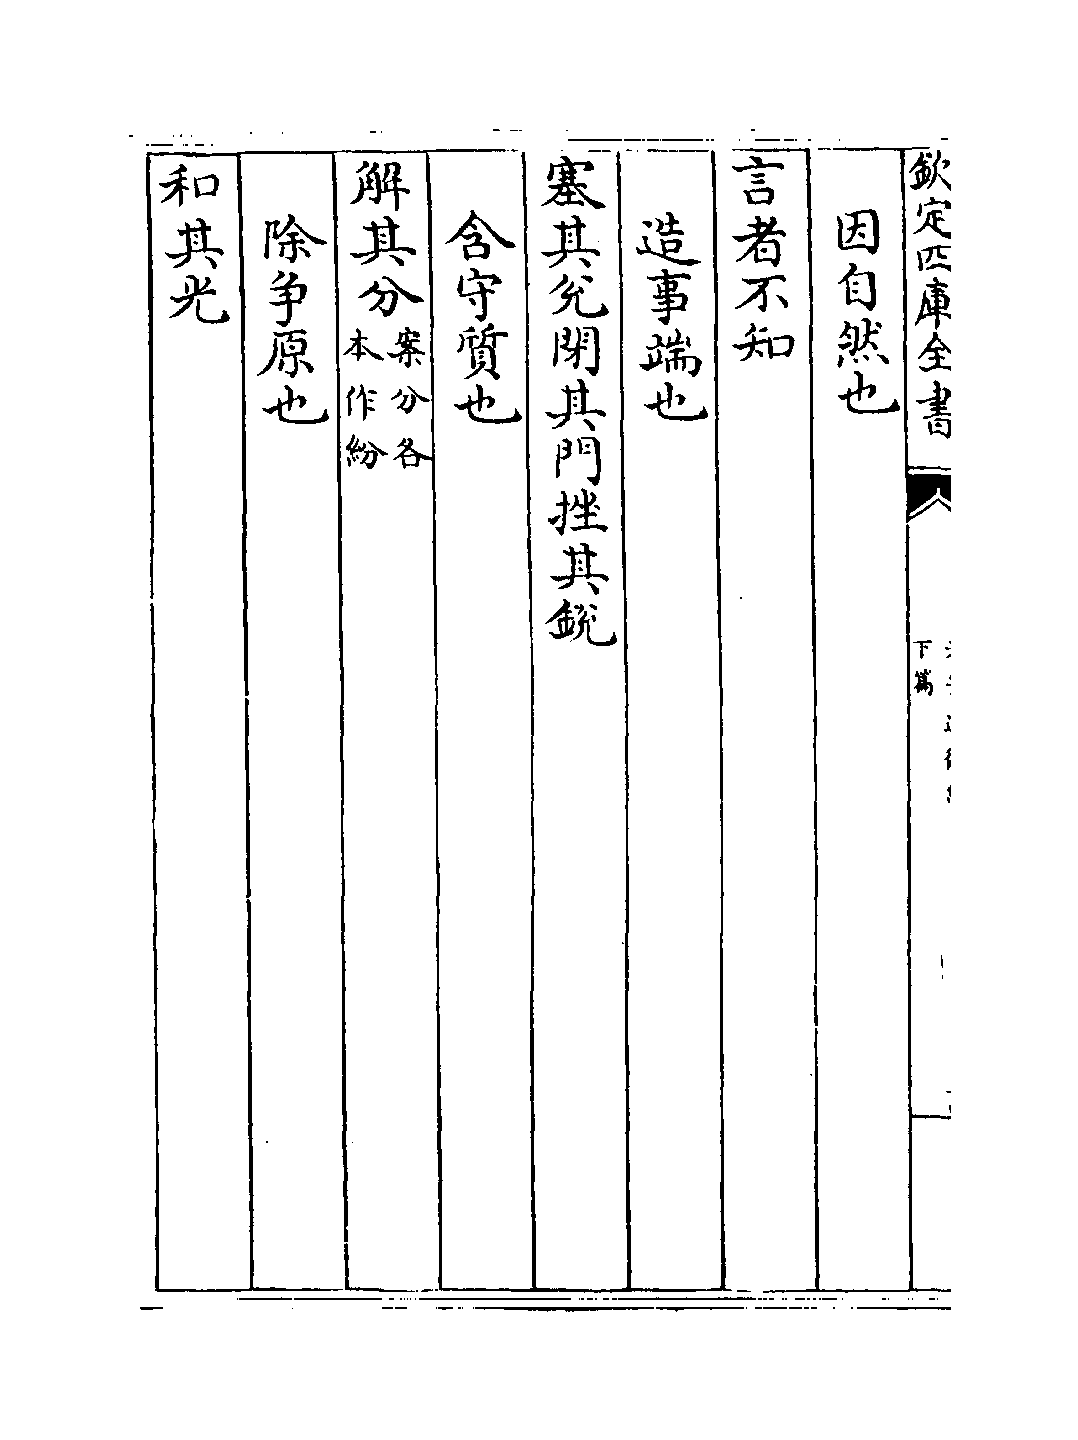 欽定四庫全書
下篇
因自然也
言者不知
造事端也
塞其兊閉其門挫其銳
含守質也
解其分案分各
本作紛
除争原也
和其光